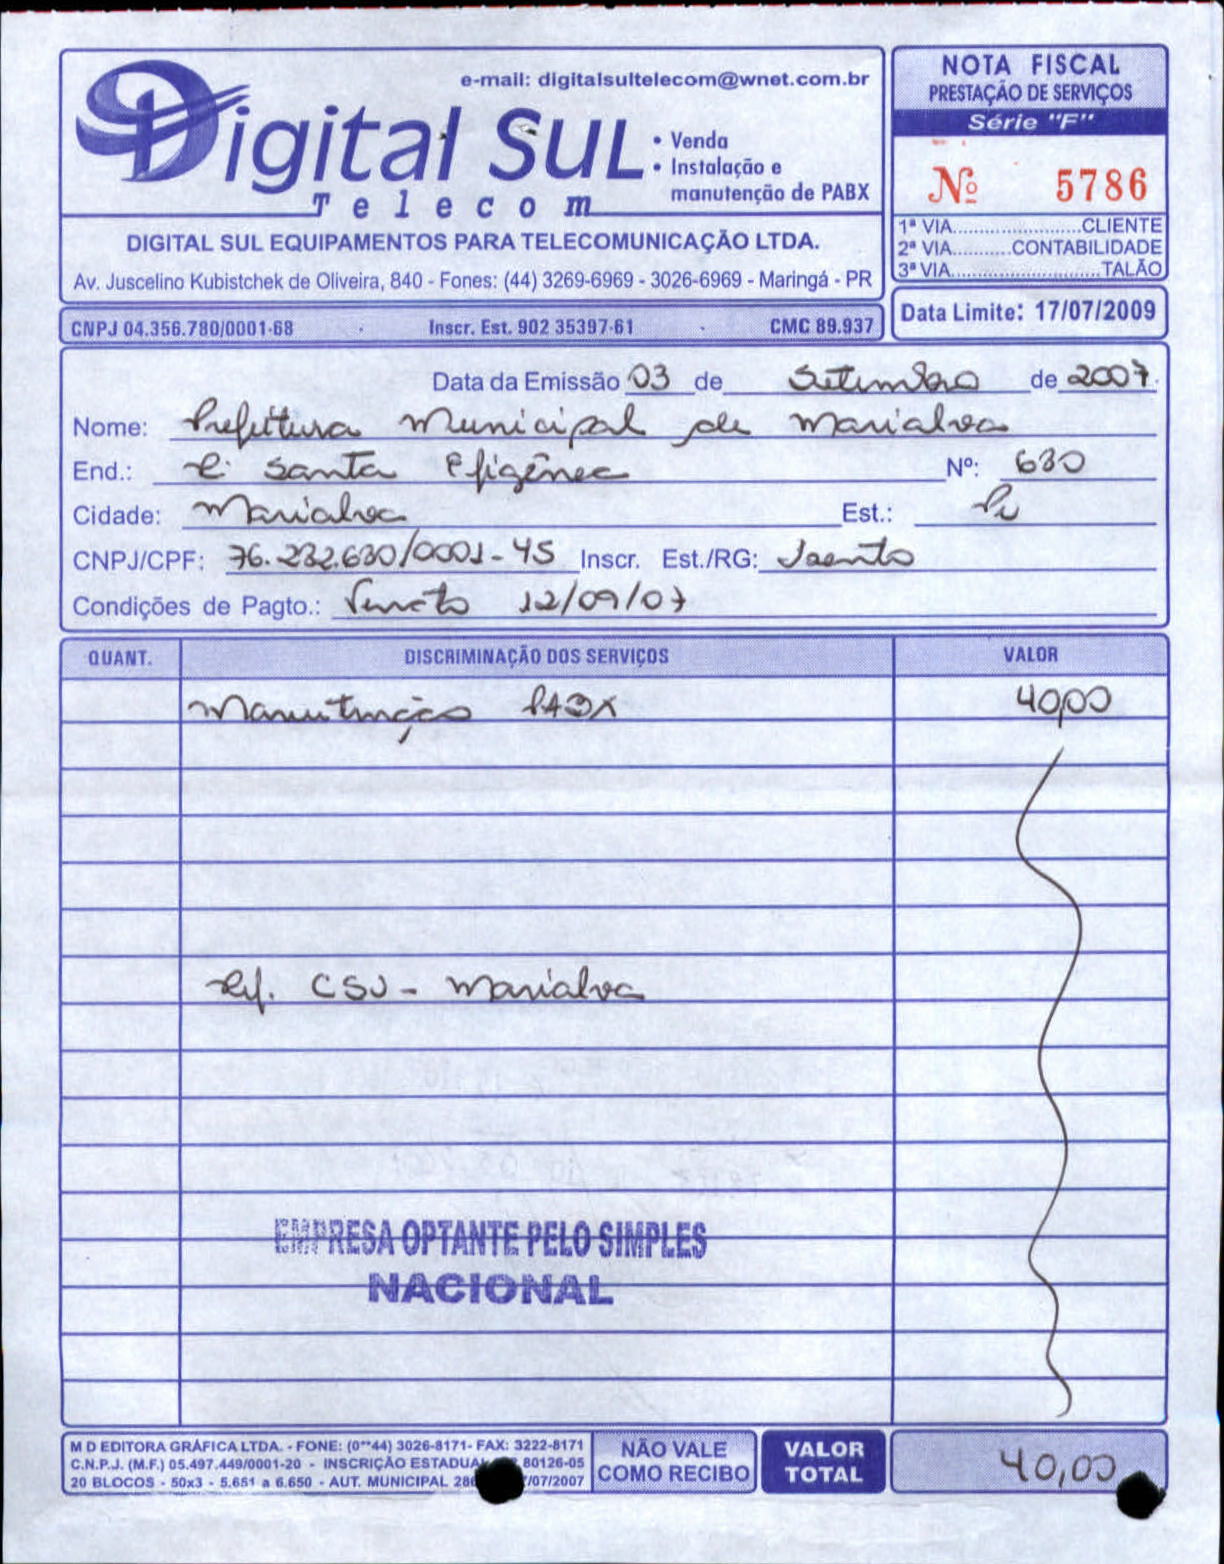 e-mail: digitalsultelecom@wnet.com.br
Digital SUL
Telecom
• Venda
• Instalação e
manutenção de PABX
DIGITAL SUL EQUIPAMENTOS PARA TELECOMUNICAÇÃO LTDA.
Av. Juscelino Kubistchek de Oliveira, 840 - Fones: (44) 3269-6969 - 3026-6969 - Maringá - PR
CNPJ 04.356.780/0001-68 Inscr. Est. 902 35397-61 CMC 89.937
NOTA FISCAL
PRESTAÇÃO DE SERVIÇOS
Série "F"
Nº 5786
1ª VIA......................CLIENTE
2ª VIA...........CONTABILIDADE
3ª VIA..........................TALÃO
Data Limite: 17/07/2009
Data da Emissão 03 de Setembro de 2007
Nome: Prefeitura Municipal de Marialva
End.: R. Santa Efigênia Nº: 680
Cidade: Marialva Est.: Pr
CNPJ/CPF: 76.282.680/0001-45 Inscr. Est./RG: Isento
Condições de Pagto.: Vencto 12/09/07
QUANT. DISCRIMINAÇÃO DOS SERVIÇOS VALOR
Manutenção PABX 40,00
Ref. CSU - Marialva
EMPRESA OPTANTE PELO SIMPLES
NACIONAL
M D EDITORA GRÁFICA LTDA. - FONE: (0**44) 3026-8171- FAX: 3222-8171
C.N.P.J. (M.F.) 05.497.449/0001-20 - INSCRIÇÃO ESTADUAL 80126-05
20 BLOCOS - 50x3 - 5.651 a 6.650 - AUT. MUNICIPAL /07/2007
NÃO VALE
COMO RECIBO
VALOR
TOTAL
40,00